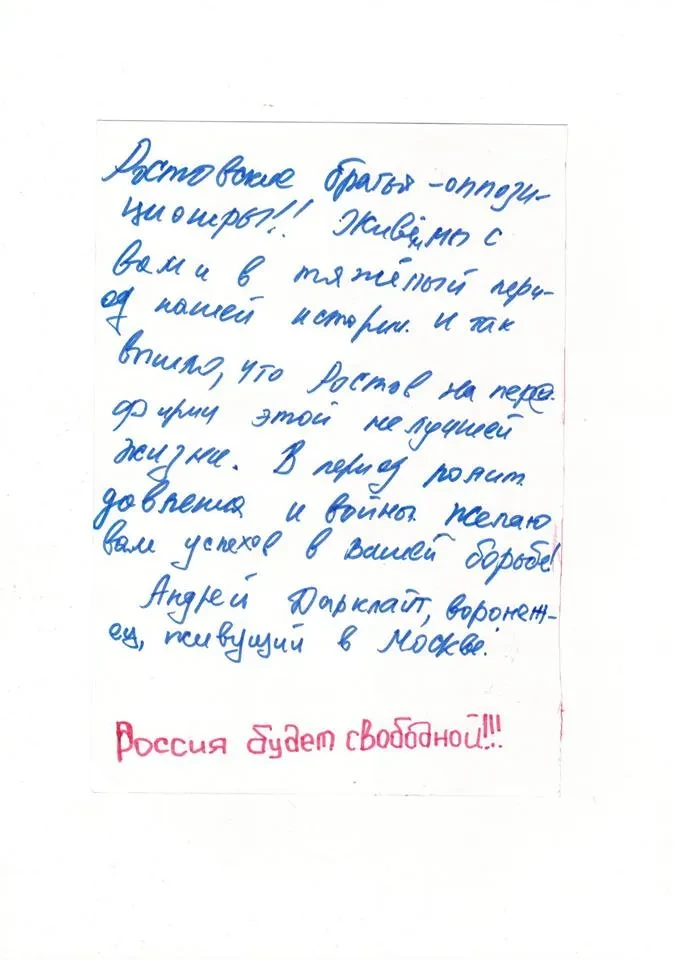 Ростовские братья-оппози-
ционеры!! Живём мы с
вами в тяжёлый пери-
од нашей истории. И так
вышло, что Ростов на пере-
ферии этой не лучшей
жизни. В период полит.
давления и войны желаю
вам успехов в вашей борьбе!
Андрей Дарклайт, воронеж-
ец, живущий в Москве.
Россия будет свободной!!!